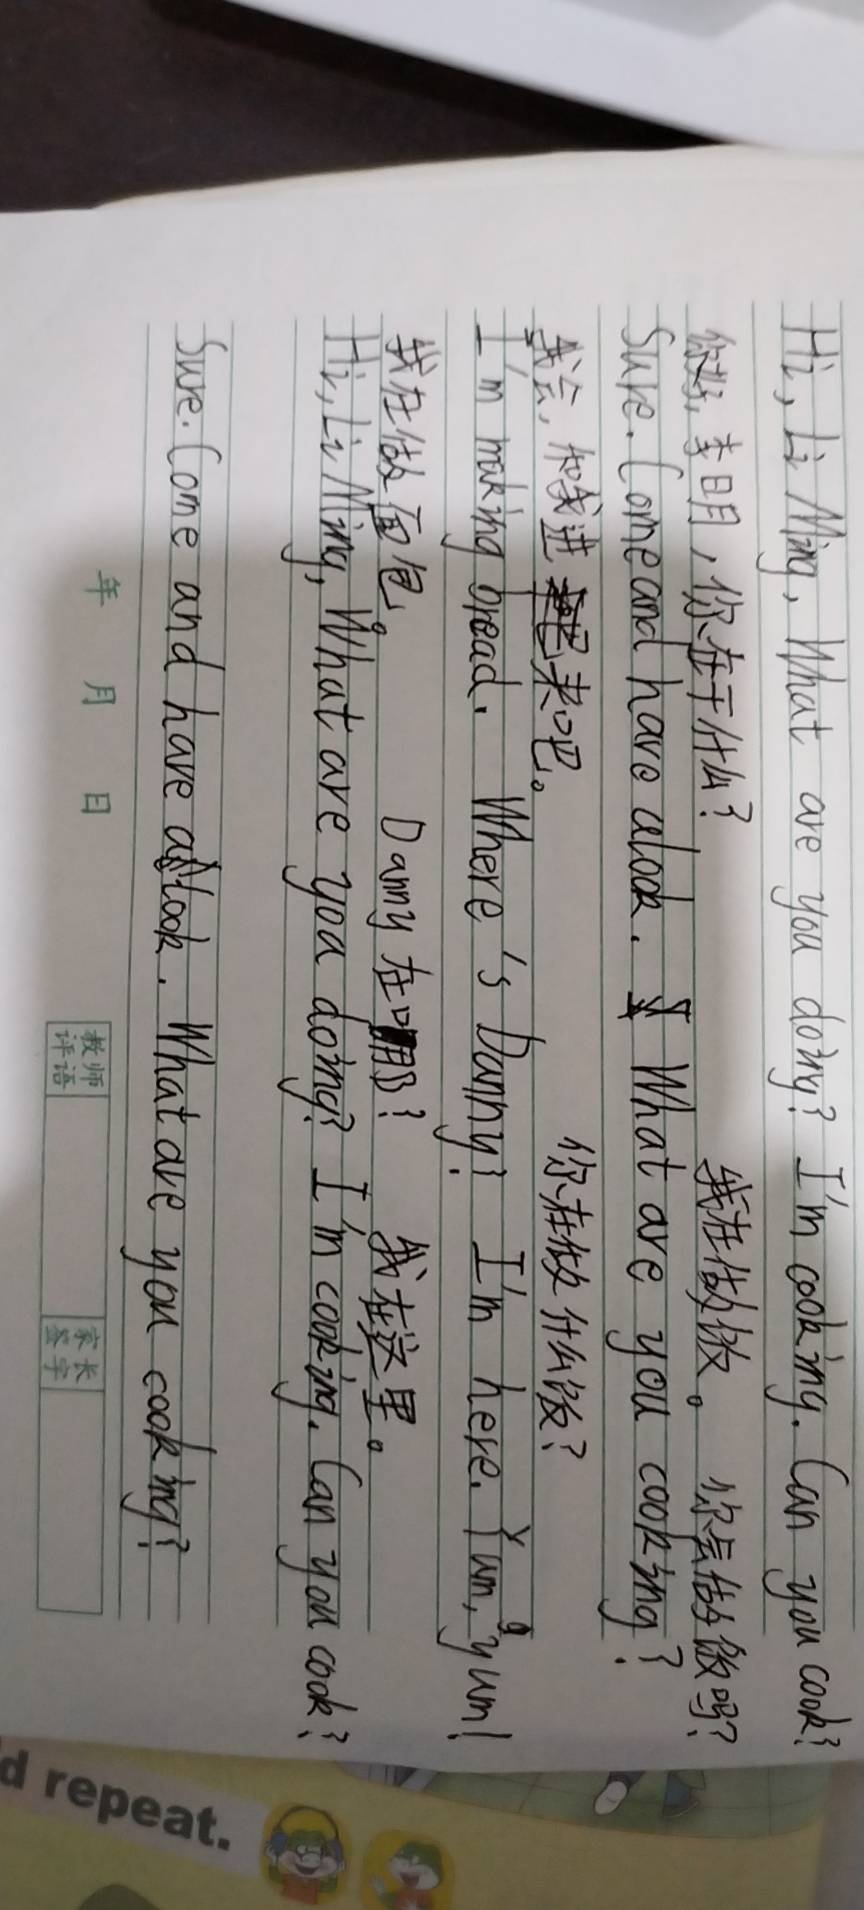 Hi, Li Ming, What are you doing? I'm cooking. Can you cook?
你好,李明,你在干什么? 我在做饭。 你会做饭吗?
Sure. Come and have a look. What are you cooking?
我会,和我进来吧。 你在做什么饭?
I'm making bread. Where's Danny? I'm here. Yum, yum!
我在做面包。 Danny在哪? 我在这里。
Hi, Li Ming, What are you doing? I'm cooking. Can you cook?
Sure. Come and have a look. What are you cooking?
年 月 日
教师评语
家长签字
d repeat.